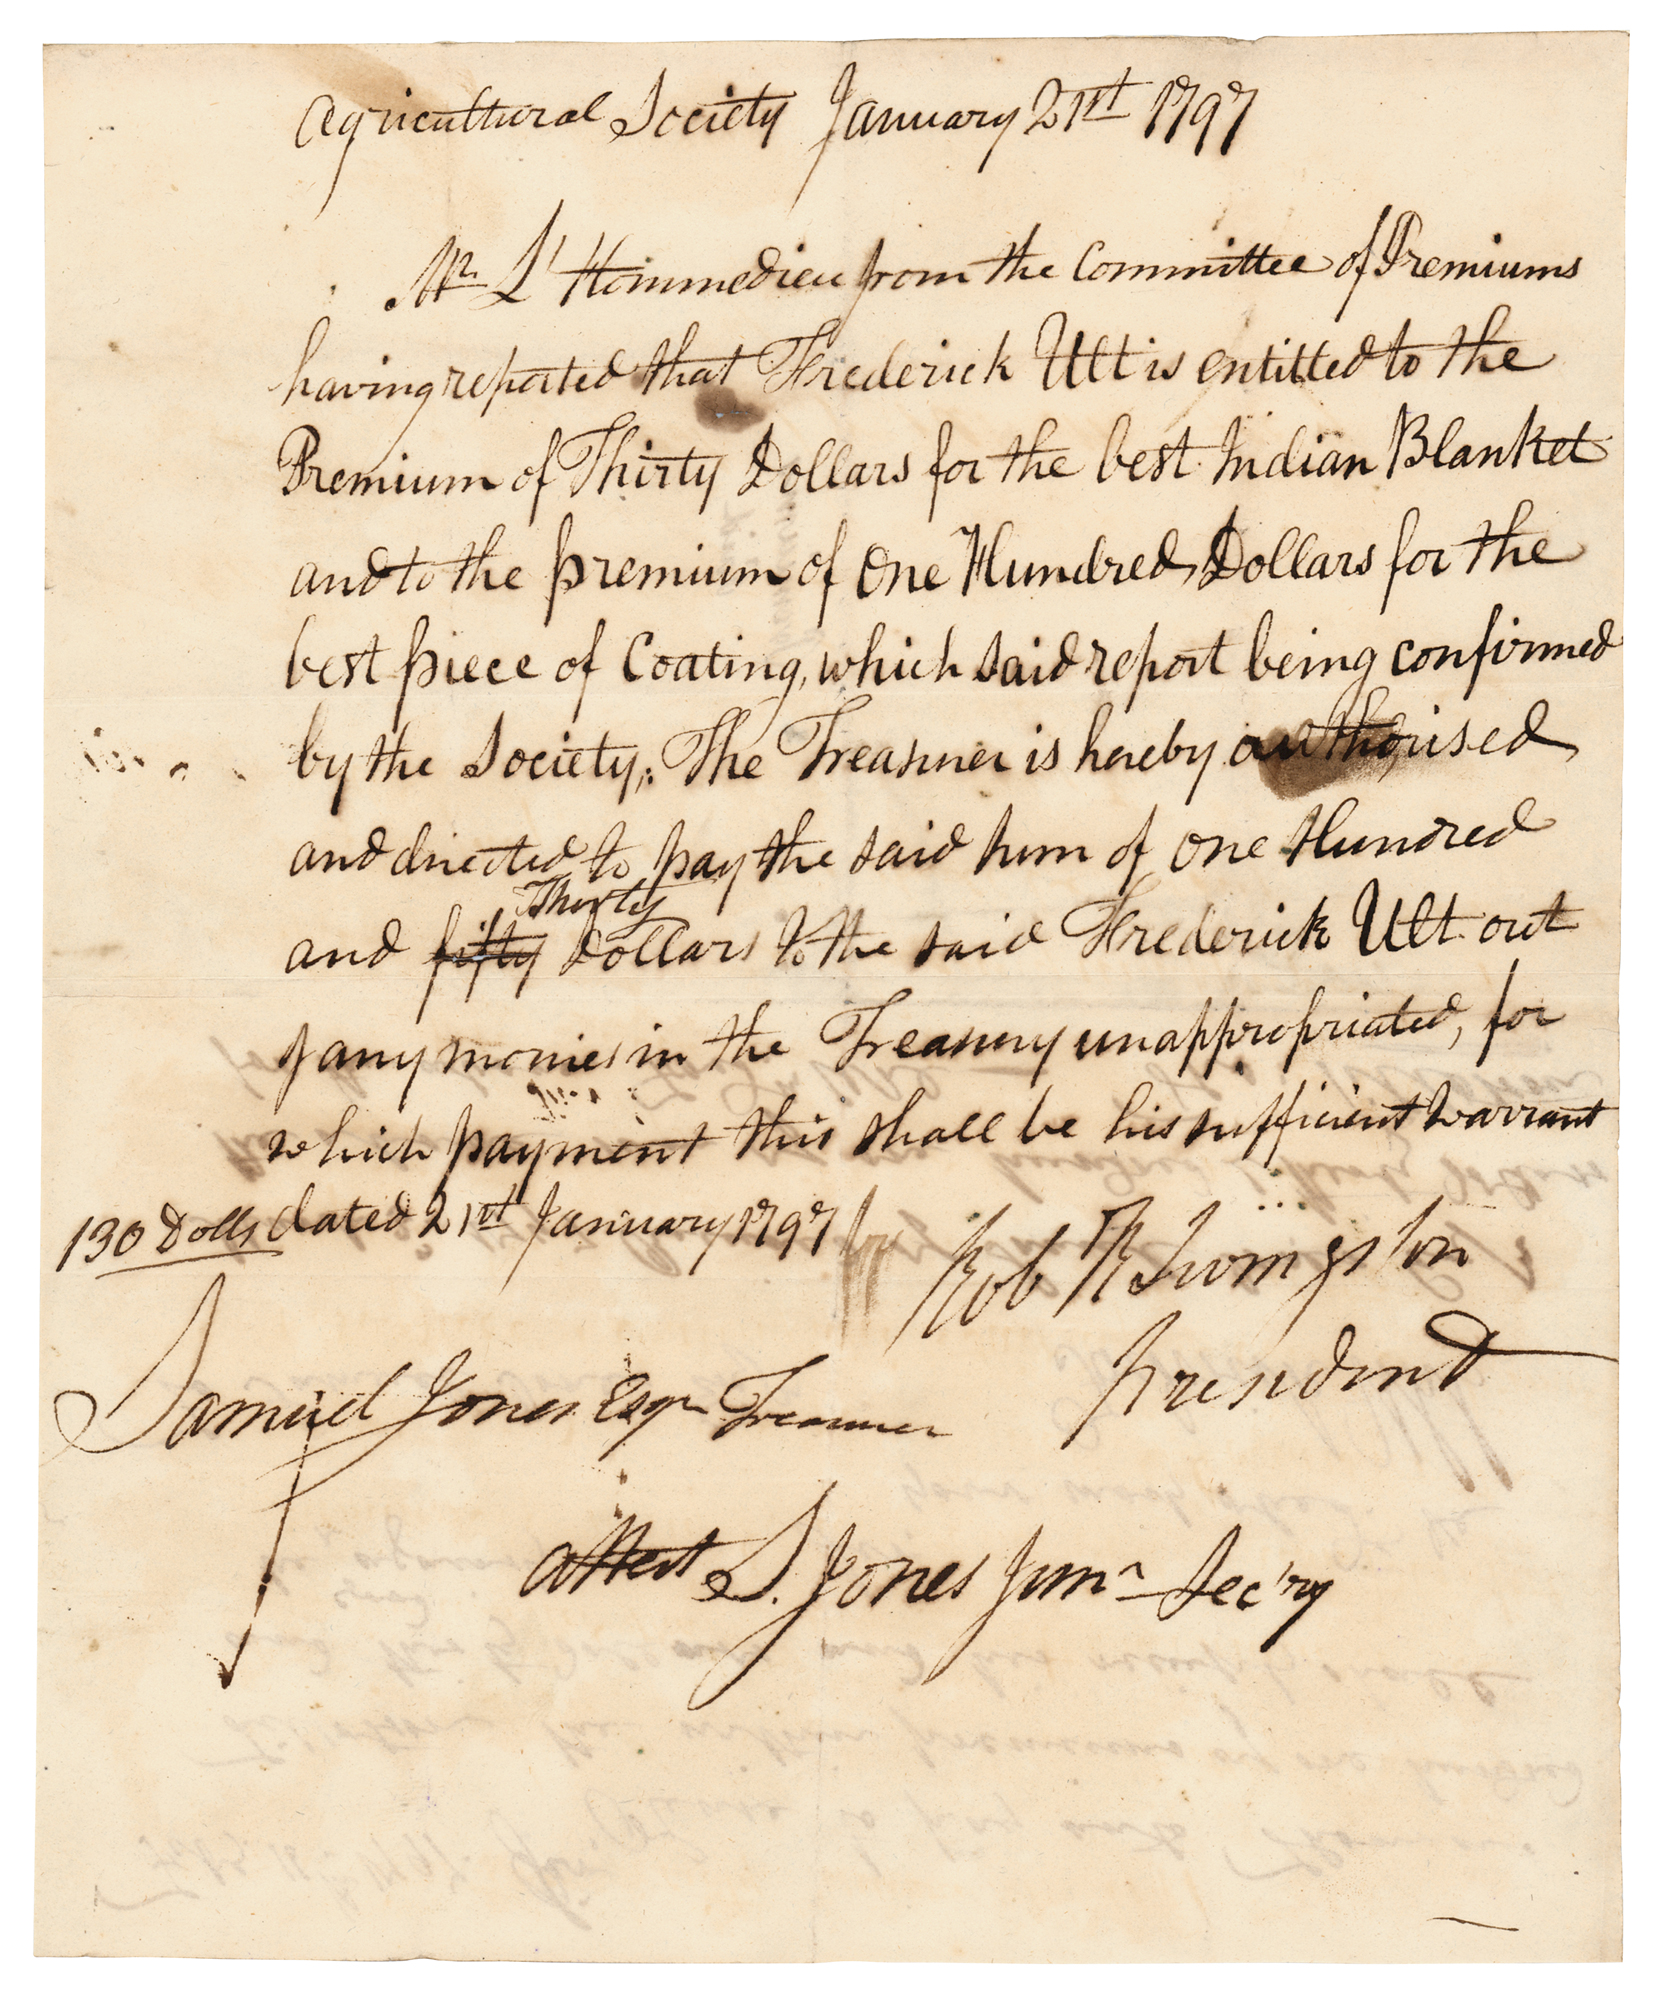 Agricultural Society January 21st 1797
Mr L'Hommedieu from the Committee of Premiums
having reported that Frederick Ult is entitled to the
Premium of Thirty Dollars for the best Indian Blanket
and to the premium of One Hundred Dollars for the
best piece of Coating, which said report being confirmed
by the Society,: The Treasurer is hereby authorised
and directed to pay the said sum of One Hundred
Thirty
and fifty Dollars to the said Frederick Ult out
of any monies in the Treasury unappropriated, for
which payment this shall be his sufficient warrant
130 Dolls dated 21st January 1797
Rob R Livingston
President
Samuel Jones Esqr Treasurer
attest S. Jones Junr Sec'ry